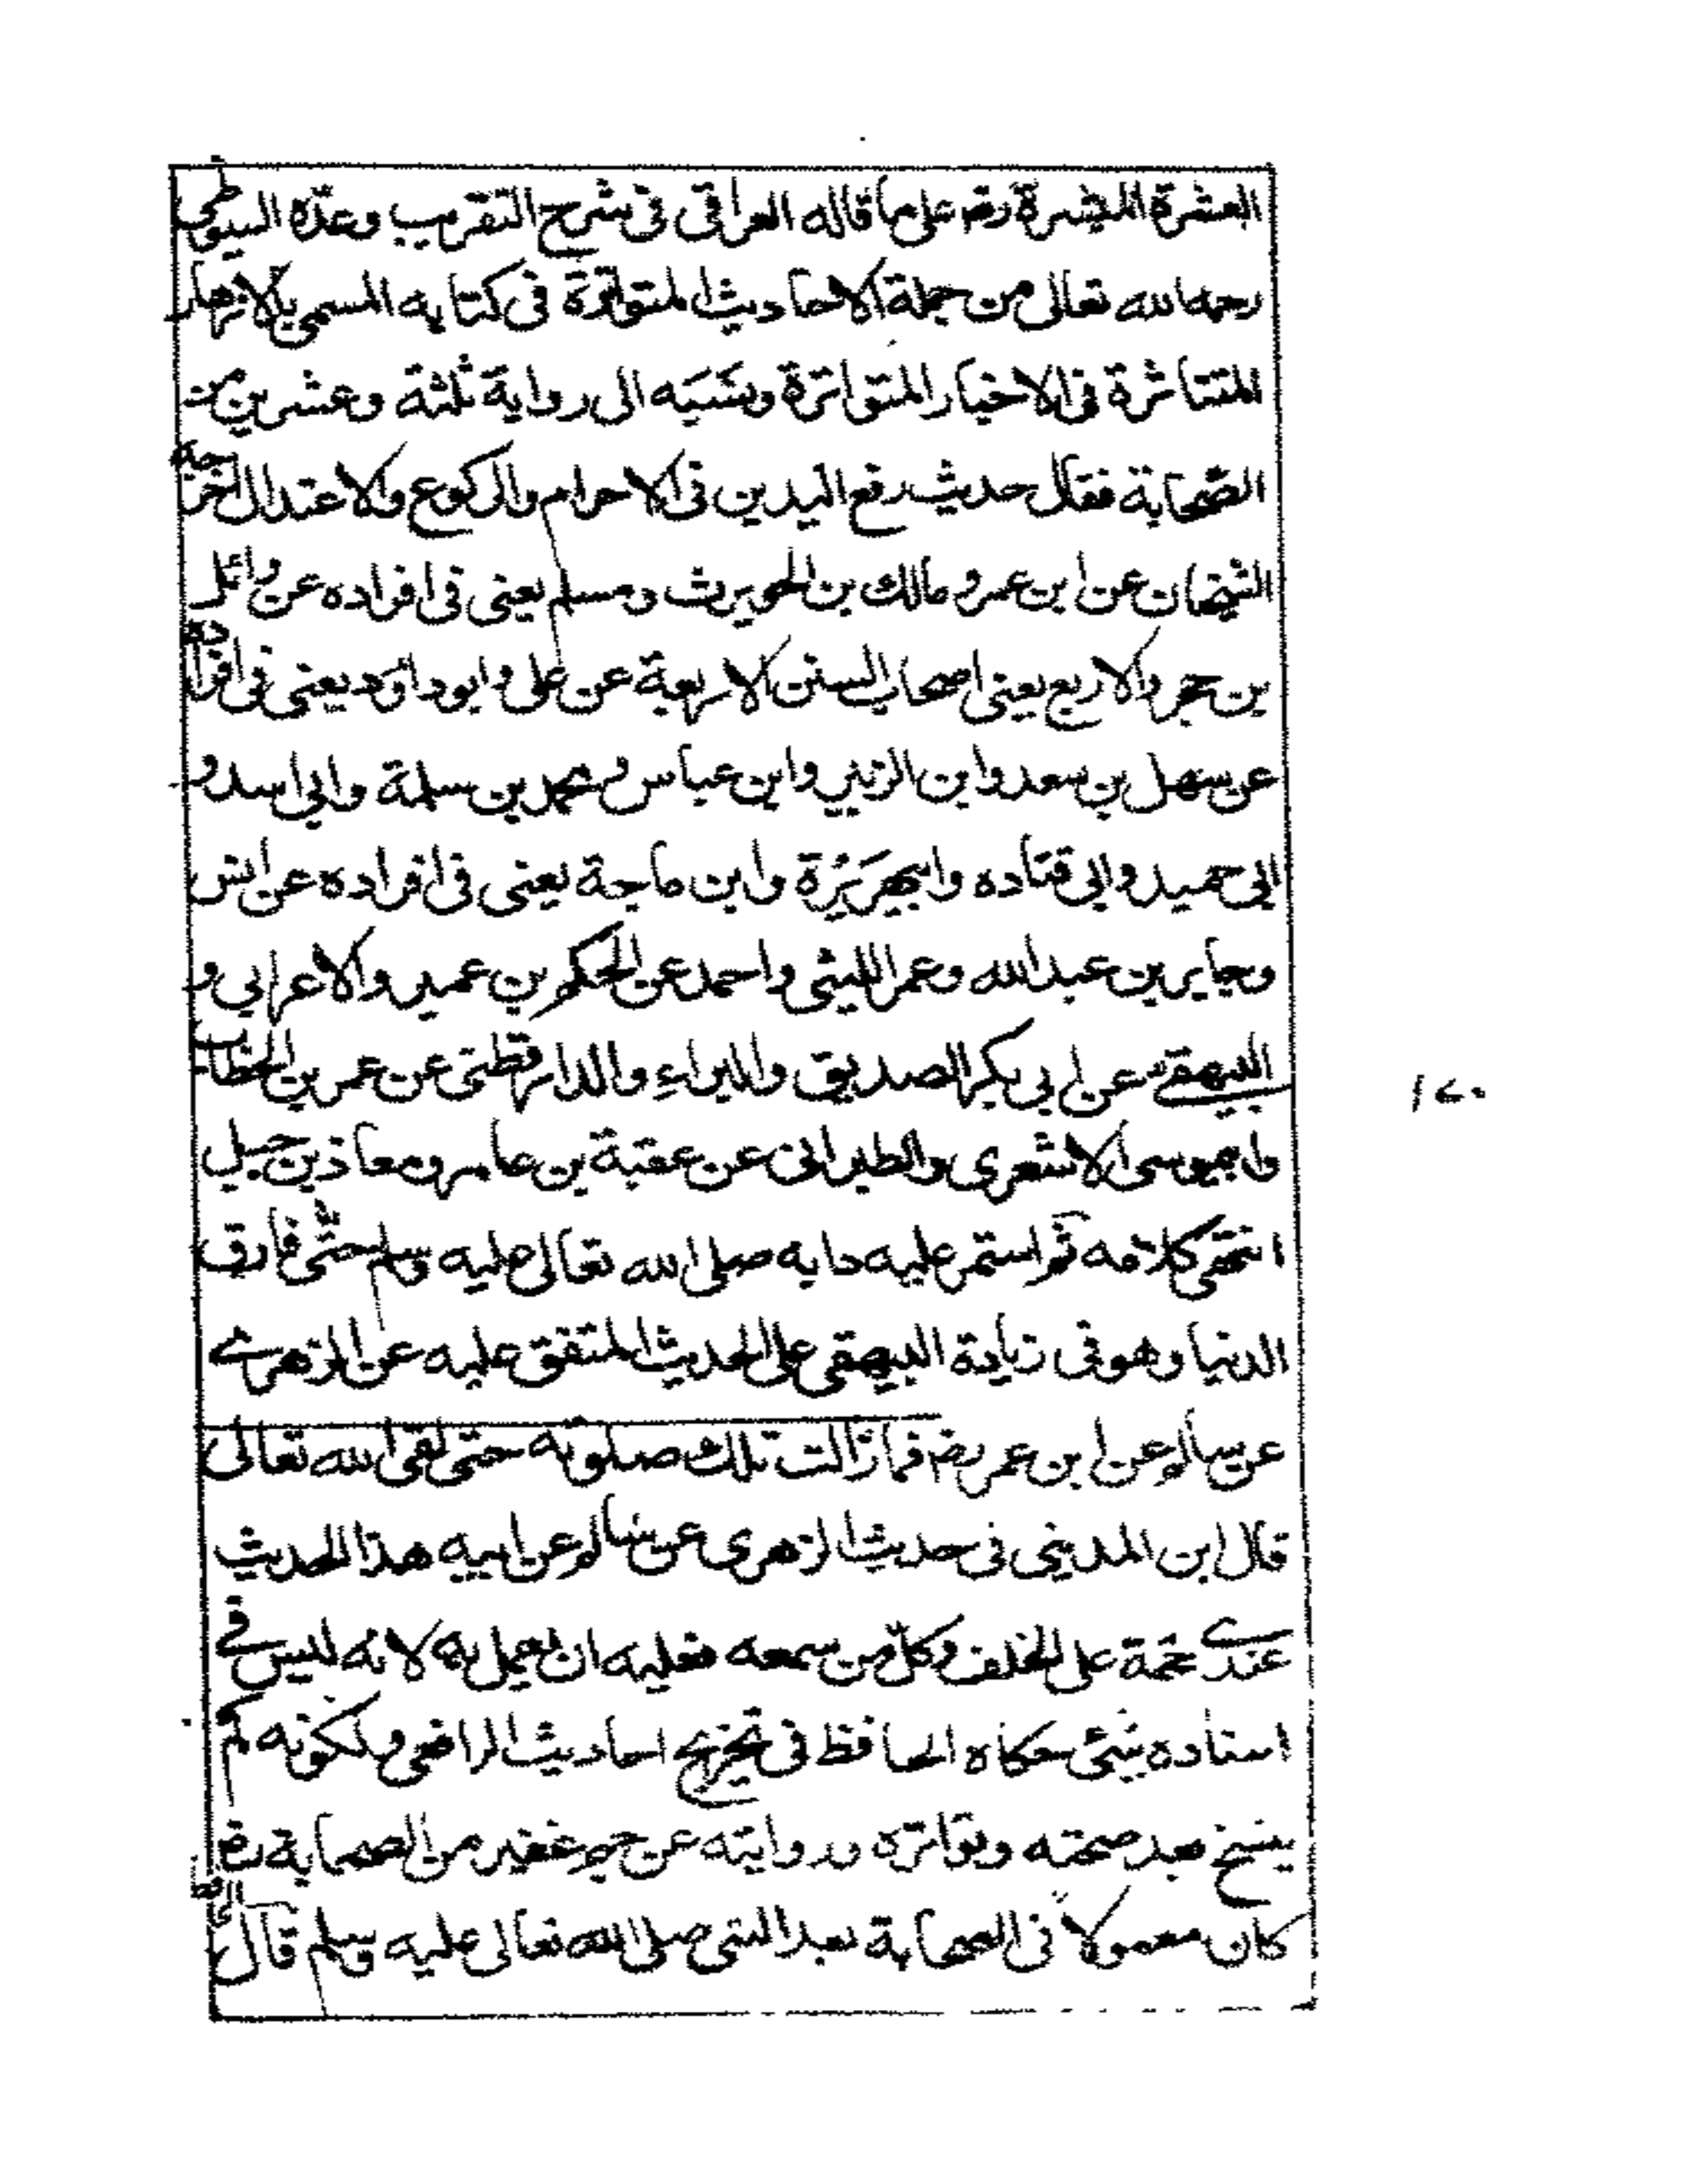 العشرة المبشرة رضـ على ما قاله العراقى فى شرح التقريب وعدّه السيوطى
رحمه الله تعالى من جملة الاحاديث المتواترة فى كتابه المسمى بالازهار
المتناثرة فى الاخبار المتواترة ونسَبَه الى رواية ثلثة وعشرين من
الصّحابة فقال حديث رفع اليدين فى الاحرام والركوع والاعتدال اخرجه
الشيخان عن ابن عمر و مالك بن الحويرث ومسلم يعنى فى افراده عن وائل
بن حجر والاربع يعنى اصحاب السنن الاربعة عن على وابو داؤد يعنى فى افراده
عن سهل بن سعد وابن الزبير وابن عباس ومحمد بن سلمة وابى اسد و
ابى حميد وابى قتاده وابىهرَيْرَة وابن ماجة يعنى فى افراده عن انس
وجابر بن عبد الله وعمر الليثى واحمد عن الحكم بن عمير والاعرابى و
البيهقى عن ابى بكر الصديق والبراء والدارقطنى عن عمر بن الخطاب
وابىموسى الاشعرى والطبرانى عن عقبة بن عامر ومعاذ بن جبل
انتهى كلامه ثم استمر عليه دابه صلى الله تعالى عليه وسلم حتّى فارق
الدنيا وهو فى زيادة البيهقى على الحديث المتفق عليه عن الزهرى
عن سالم عن ابن عمر رضـ فما زالت تلك صلوته حتى لقى الله تعالى
قال ابن المدينى فى حديث الزهرى عن سالم عن ابيه هذا الحديث
عندى حجة على الخلف وكل من سمعه فعليه ان يعمل به لانه ليس فى
اسناده شئ حكاه الحافظ فى تخريج احاديث الرافعى ولكونه لم
ينسخ بعد صحته وتواتره وروايته عن جم غفير من الصحابة رضـ
كان معمولاً فى الصحابة بعد النبى صلى الله تعالى عليه وسلم قال
١٢٠